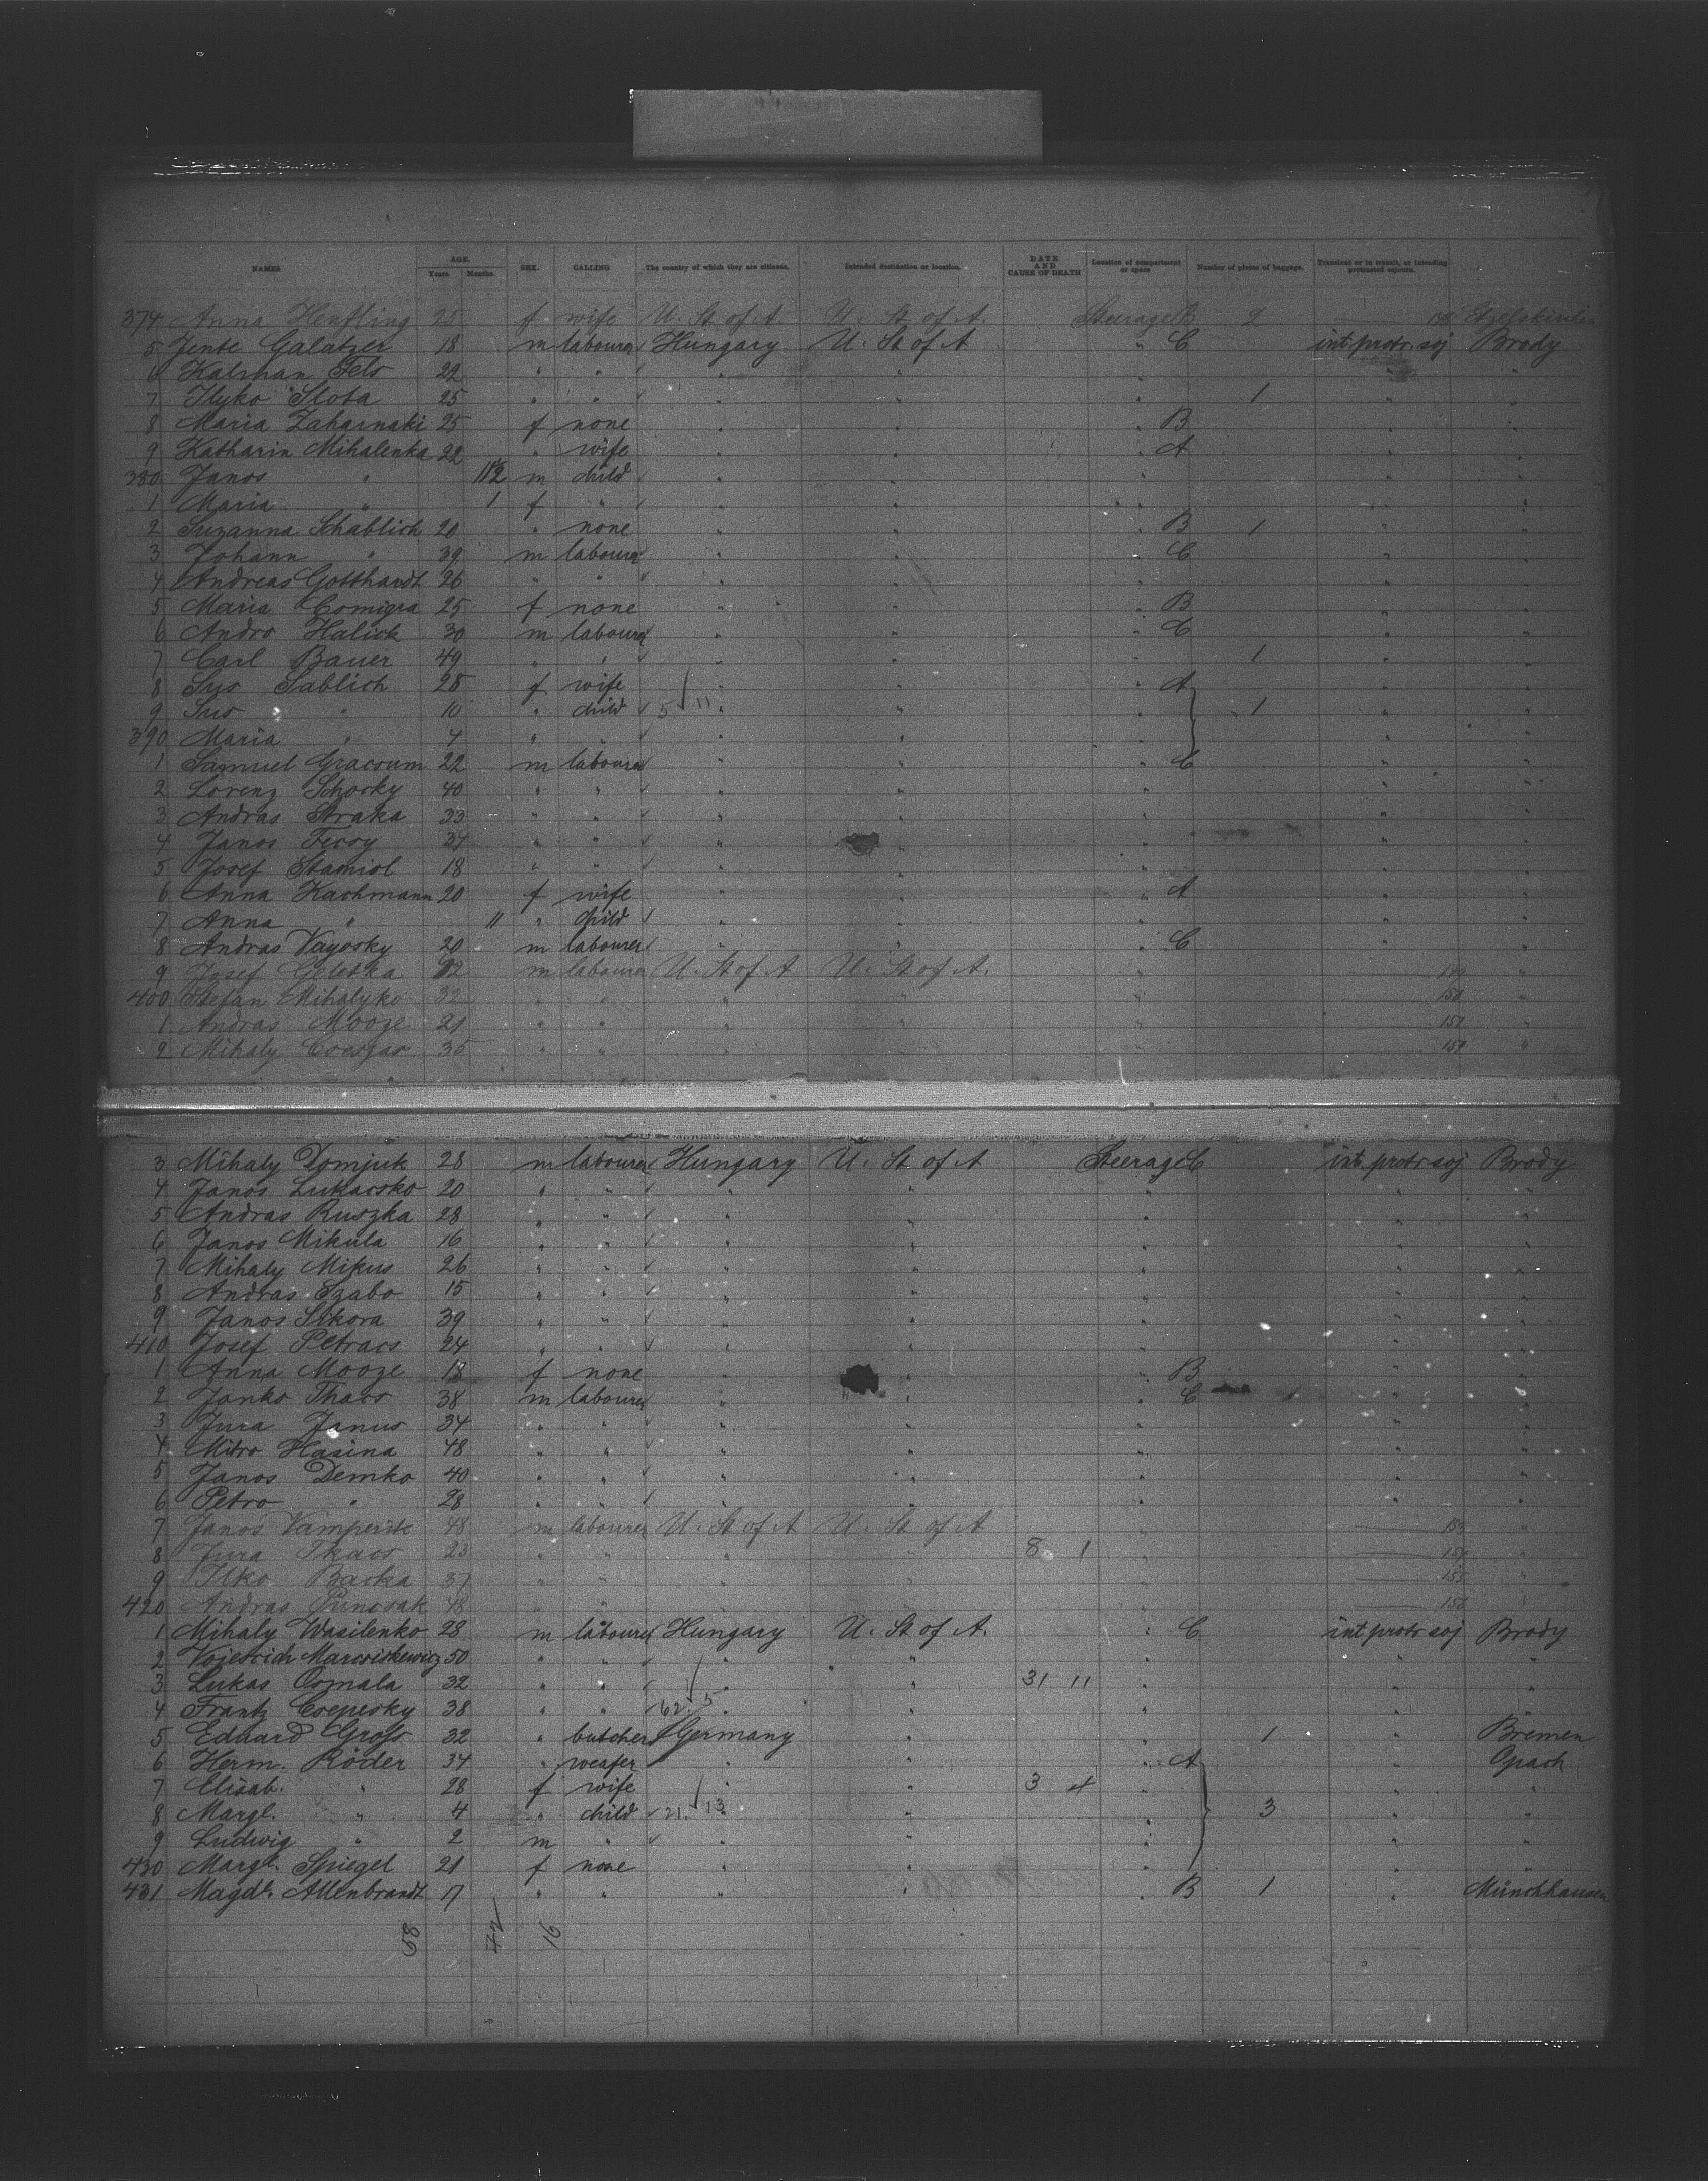 NAMES AGE. Years Months SEX. CALLING The country of which they are citizens. Intended destination or location. DATE AND CAUSE OF DEATH Location of compartment or space Number of pieces of baggage. Transient or in transit, or intending protracted sojourn.
374 Anna Henfling 25 f wife U. St of A U. St of A. Steerage B 2
5 Jente Galatzer 18 m labourer Hungary U. St of A " C int. protr. soj Brody
6 Kalman Fels 22 " " " " " " "
7 Ilyko Slota 25 " " " " " 1 " "
8 Maria Zaharnaki 25 f none " " " B " "
9 Katharin Mihalenka 22 " wife " " " A " "
380 Janos " 11 1/2 m child " " " " "
1 Maria " 1 f " " " " " "
2 Suzanna Schablich 20 " none " " " B 1 " "
3 Johann " 39 m labourer " " " C " "
4 Andreas Gotthardt 26 " " " " " " "
5 Maria Comigra 25 f none " " " B " "
6 Andro Halick 30 m labourer " " " C " "
7 Carl Bauer 49 " " " " " 1 " "
8 Sus Sablich 28 f wife " " " A " "
9 Sus " 10 " child 5 11 " " " 1 " "
390 Maria " 4 " " " " " " "
1 Samuel Gracoum 22 m labourer " " " C " "
2 Lorenz Schosky 40 " " " " " " "
3 Andras Straka 33 " " " " " " "
4 Janos Fecsy 37 " " " " " " "
5 Josef Stamiol 18 " " " " " " "
6 Anna Kachmann 20 f wife " " " A " "
7 Anna " 11 " child " " " " "
8 Andras Vayosky 20 m labourer " " " C " "
9 Josef Geletka 32 m labourer U. St of A U. St of A. " 149 "
400 Stefan Mihalyko 32 " " " " " 150 "
1 Andras Mooze 21 " " " " " 151 "
2 Mihaly 35 " " " " "
3 Mihaly Domjuk 28 m labourer Hungary U. St of A Steerage C int. protr soj Brody
4 Janos Lukacsko 20 " " " " " " "
5 Andras Ruszka 28 " " " " " " "
6 Janos Mikula 16 " " " " " " "
7 Mihaly Mikus 26 " " " " " " "
8 Andras Szabo 15 " " " " " " "
9 Janos Sikora 39 " " " " " " "
410 Josef Petracs 24 " " " " " " "
1 Anna Mooze 18 f none " " " B " "
2 Janko Thacs 38 m labourer " " " C " "
3 Jura Janus 34 " " " " " " "
4 Mitro Hasina 48 " " " " " " "
5 Janos Demko 40 " " " " " " "
6 Petro " 28 " " " " " " "
7 Janos Vamperik 48 m labourer U. St of A U. St of A " 153 "
8 Jura Tkacs 23 " " " " 8 1 " 154 "
9 Ilko Backa 37 " " " " " 155 "
420 Andras Puncsak 48 " " " " " 156 "
1 Mihaly Wasilenko 28 m labourer Hungary U. St of A. " C int protr soj Brody
2 Vojetich Marciskewicz 50 " " " " " " "
3 Lukas Osmala 32 " " " " 31 11 " " "
4 Frantz Csepesky 38 " " 62. 5 " " " " "
5 Eduard Gross 32 " butcher Germany " " 1 " Bremen
6 Herm. Röder 34 " weafer " " " A "
7 Elisab. " 28 f wife " " 3 4 " " "
8 Margl. " 4 " child 21. 13 " " " 3 " "
9 Ludwig " 2 m " " " " " "
430 Margl. Spiegel 21 f none " " " " "
431 Magdl. Allenbrandt 17 " " " " " B 1 " Münchhausen
58 42 16